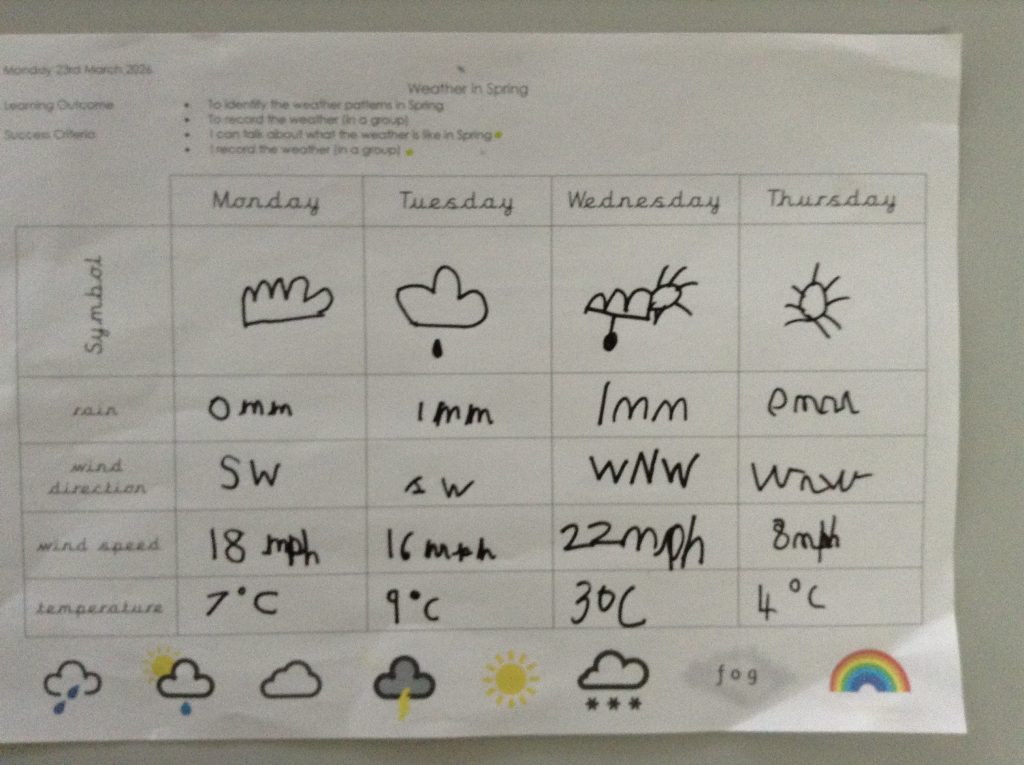 Monday 23rd March 2026
Weather in Spring
Learning Outcome
• To identify the weather patterns in Spring
• To record the weather (in a group)
Success Criteria
• I can talk about what the weather is like in Spring
• I record the weather (in a group)
Monday Tuesday Wednesday Thursday
Symbol
rain 0 mm 1 mm 1mm 0mm
wind direction SW s w WNW wnw
wind speed 18 mph 16 mph 22mph 8mph
temperature 7°C 9°C 3°C 4°C
fog